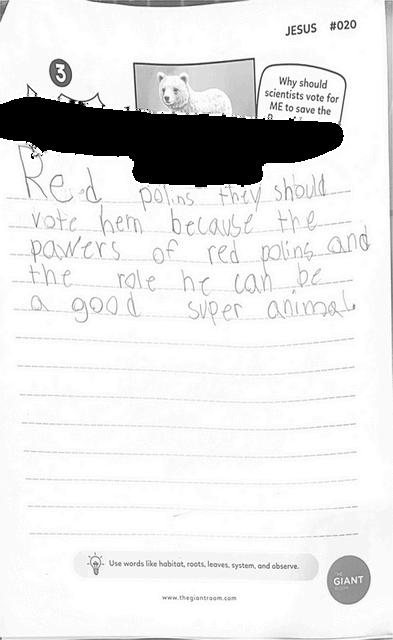 JESUS #020
3
Why should
scientists vote for
ME to save the
Red polins they should
vote hem because the
powers of red polins and
the role he can be
a good super animal.
Use words like habitat, roots, leaves, system, and observe.
THE
GIANT
ROOM
www.thegiantroom.com